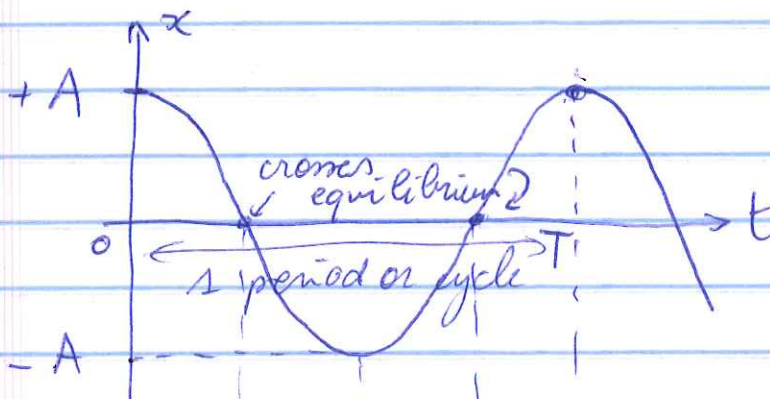 x
+ A
crosses
equilibrium
t
0
T
1 period or cycle
- A